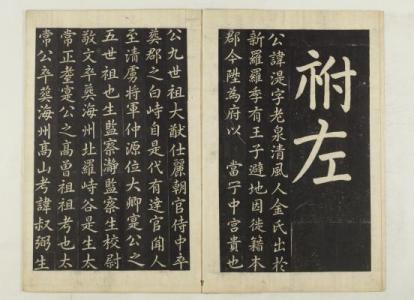 祔左
公諱湜字老泉清風人金氏出於
新羅羅季有王子避地因徙籍本
郡今陞為府以 當宁中宮貴也
公九世祖大猷仕麗朝官侍中卒
葬郡之白峙自是代有達官聞人
至清虜將軍仲源位大卿寔公之
五世祖也生監察瀞監察生校尉
敬文卒葬海州北羅峙谷是生太
常正耋寔公之高曾祖祖考也太
常公卒葬海州高山考諱叔弼生